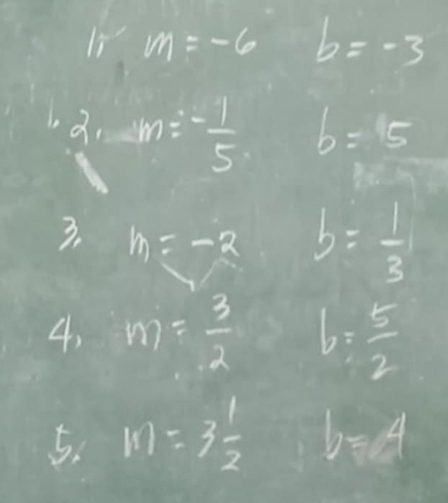 1. m = -6 b = -3
2. m = -1/5 b = 5
3. m = -2 b = 1/3
4. m = 3/2 b = 5/2
5. m = 3 1/2 b = 4